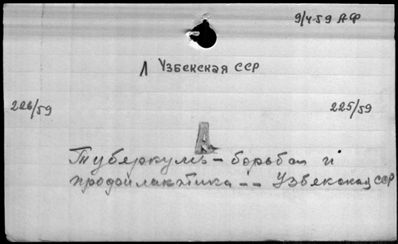 9/4-59 АФ
Л Узбекская ССР
226/59
225/59
Л
Туберкулъ – борьба и
профилактика -- Узбекская ССР